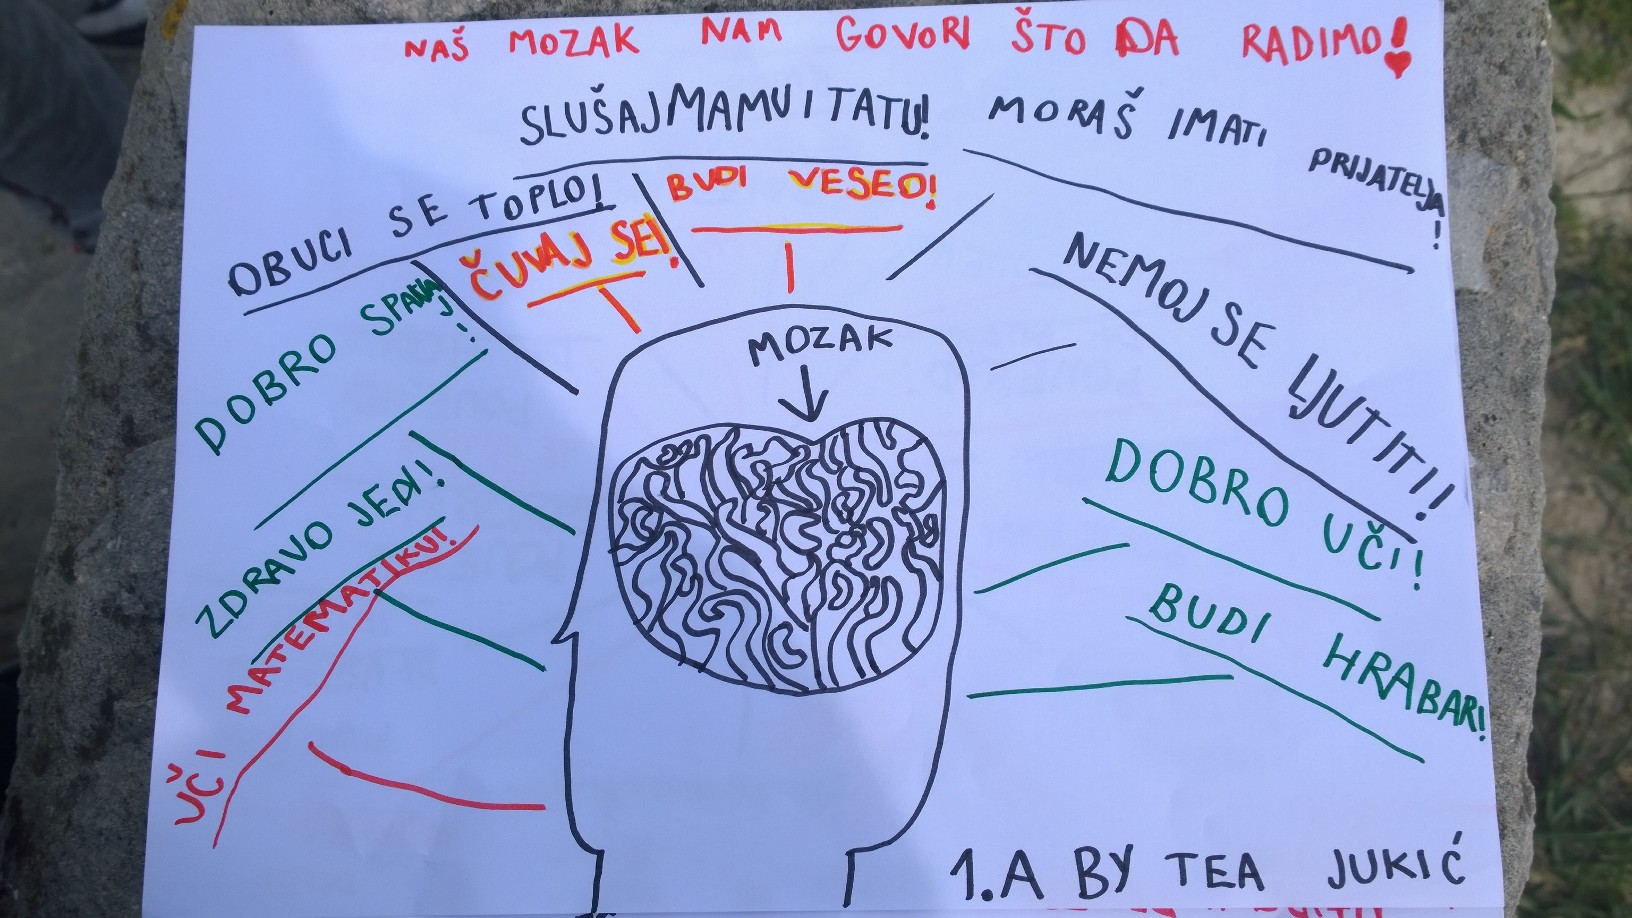 NAŠ MOZAK NAM GOVORI ŠTO DA RADIMO!
SLUŠAJ MAMU I TATU!
MORAŠ IMATI PRIJATELJA!
OBUCI SE TOPLO!
ČUVAJ SE!
BUDI VESEO!
NEMOJ SE LJUTITI!
DOBRO SPAVAJ!
MOZAK
ZDRAVO JEDI!
DOBRO UČI!
UČI MATEMATIKU!
BUDI HRABAR!
1.A BY TEA JUKIĆ